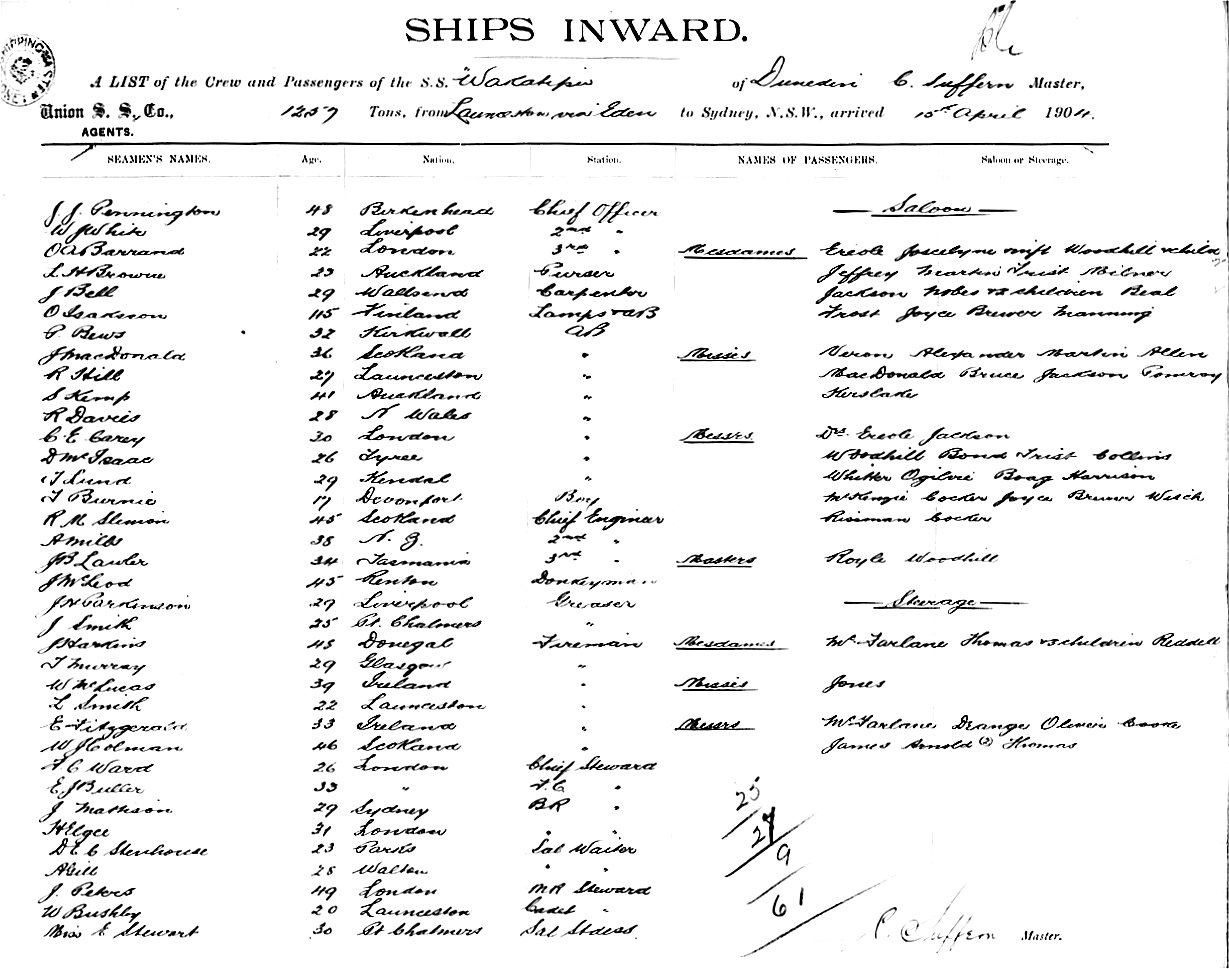 SHIPS INWARD.
A LIST of the Crew and Passengers of the S.S. "Wakatipu of Dunedin C. Suffern Master,
Union S. S. Co., 1257 Tons, from Launceston via Eden to Sydney, N.S.W., arrived 15th April 1904.
AGENTS.
SEAMEN'S NAMES. Age. Nation. Station. NAMES OF PASSENGERS. Saloon or Steerage.
J. J. Pennington 48 Birkenhead Chief Officer Saloon
W J White 29 Liverpool 2nd "
O A Barrand 22 London 3rd " Mesdames Ercole Joscelyne Swift Woodhill & child
L H Browne 23 Auckland Purser Jeffrey Martin Trist Milner
J Bell 29 Wallsend Carpenter Jackson Nobes & 2 children Beal
O Isakson 45 Finland Lamps & AB Frost Joyce Brewer Manning
P. Bews 32 Kirkwall AB
J MacDonald 36 Scotland " Misses Veron Alexander Martin Allen
R Hill 27 Launceston " MacDonald Bruce Jackson Pomroy
S Kemp 41 Auckland " Kerslake
R Davies 28 N Wales "
C E Carey 30 London " Messrs Drs. Ercole Jackson
D McIsaac 26 Tyree " Woodhill Bond Trist Collins
T Lund 29 Kendal " Ogilvie Boag Harrison
T Burnie 17 Devonport Boy McKenzie Cocker Joyce Brewer
R M Slimon 45 Scotland Chief Engineer Cocker
A Mills 38 N. Z. 2nd "
J B Lawler 34 Tasmania 3rd " Masters Royle Woodhill
J McLeod 45 Renton Donkeyman
J H Parkinson 29 Liverpool Greaser Steerage
J Smith 25 Pt. Chalmers "
J Harkins 48 Donegal Fireman Mesdames McFarlane Thomas & 3 children Reddell
T Murray 29 Glasgow "
W McLucas 39 Ireland " Misses Jones
L Smith 22 Launceston "
E Fitzgerald 33 Ireland " Messrs McFarlane Oliver Cooke
W J Colman 46 Scotland " James Arnold (2) Thomas
F C Ward 26 London Chief Steward
E J Buller 33 " F.C "
J. Mathison 29 Sydney BR "
H Elgee 31 London " "
D E C Stenhouse 23 Parks Sal Waiter
A Gill 25 Walton " "
J. Peters 49 London MR Steward
W Bushby 20 Launceston Cadet "
Miss E Stewart 30 Pt Chalmers Sal Stdess.
25
27
9
61
C. Suffern Master.